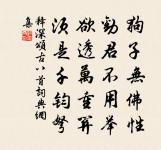 狗子無佛性
勸君不用舉
欲透萬重關
須是千鈞弩
釋深頌古八首詞典網
集